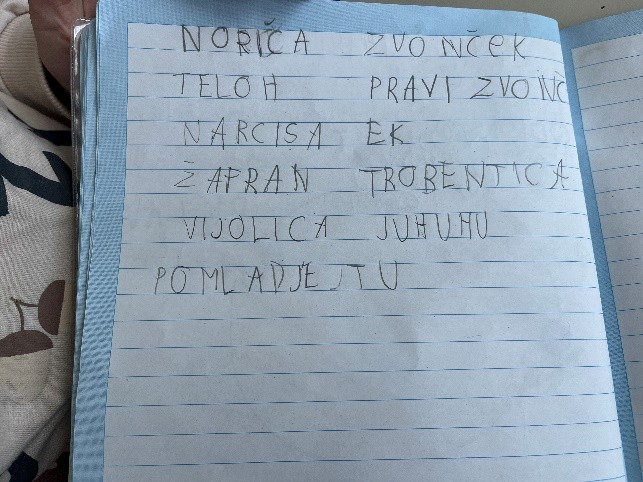 NORIČA ZVONČEK
TELOH PRAVI ZVONČ
NARCISA EK
ŽAFRAN TROBENTICA
VIJOLICA JUHUHU
POMLADJETU